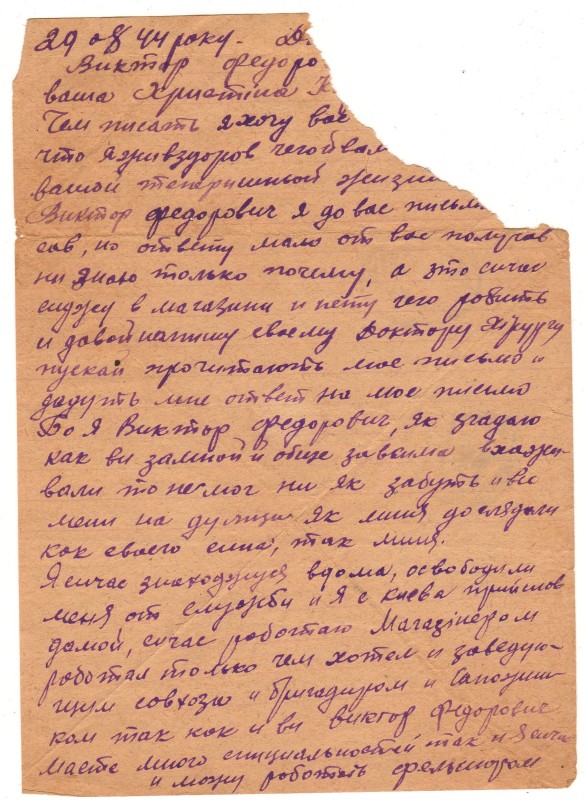 29 08 44 року. Д
Виктор Федоро
ваша Христіна К
Чем писать я хочу вас
что я жив здоров чего бвам
вашой теперишньой жизни
Виктор Федорович я до вас письма
сав, но ответу мало от вас получав
ни знаю только почему, а это сичас
сиджу в магазини и нету чего робить
и давой напишу своему Доктору Хірургу
пускай прочитають мое письмо и
дадуть мне ответ на мое письмо
Бо я Виктор Федорович, як згадаю
как ви замной и обще за всима вхажи
вали то не мог ни як забуть и ви
мени на души як миня доглядали
как своего сина, так миня.
Я сичас знахожуся вдома, освободили
меня от служби и я с Києва прийшов
домой, сичас работаю Магазінером
работал только чем хотел и заведую-
щим совхоза и бригадиром и Сапожни-
ком так как и ви Виктор Федорович
маете много специальностей так и я сича
и можу роботать фельшором